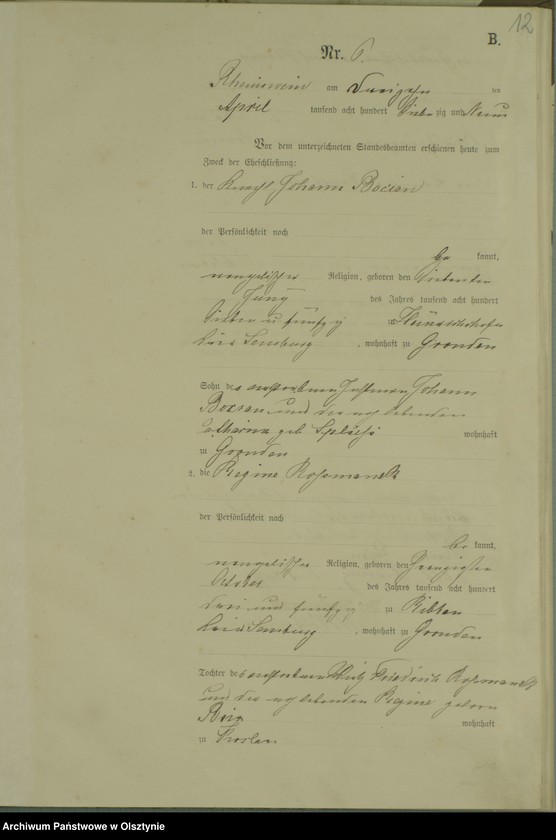 12
B.
Nr. 6.
Rheinswein am Dreizehn ten
April tausend acht hundert Siebenzig und Neun
Vor dem unterzeichneten Standesbeamten erschienen heute zum
Zweck der Eheschließung:
1. der Knecht Johann Bocian
der Persönlichkeit nach
be kannt,
evangelischer Religion, geboren den Siebenten
Juny des Jahres tausend acht hundert
Sieben u fünfzig zu
Kreis Sensburg, wohnhaft zu Gronden
Sohn des verstorbenen Johann
Bocian und der noch lebenden
Catharina geb wohnhaft
zu Gronden
2. die Regine Rossmanek
der Persönlichkeit nach
be kannt,
evangelischer Religion, geboren den Zwanzigsten
October des Jahres tausend acht hundert
drei und fünfzig zu Ribben
Kreis Sensburg, wohnhaft zu Gronden
Tochter des verstorbenen Friedrich Rossmanek
und der noch lebenden Regine geborn
wohnhaft
zu
Archiwum Państwowe w Olsztynie